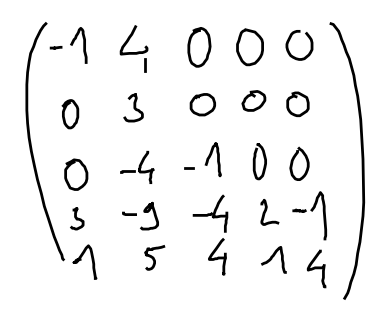 -1 4 0 0 0
0 3 0 0 0
0 -4 -1 0 0
3 -9 -4 2 -1
1 5 4 1 4